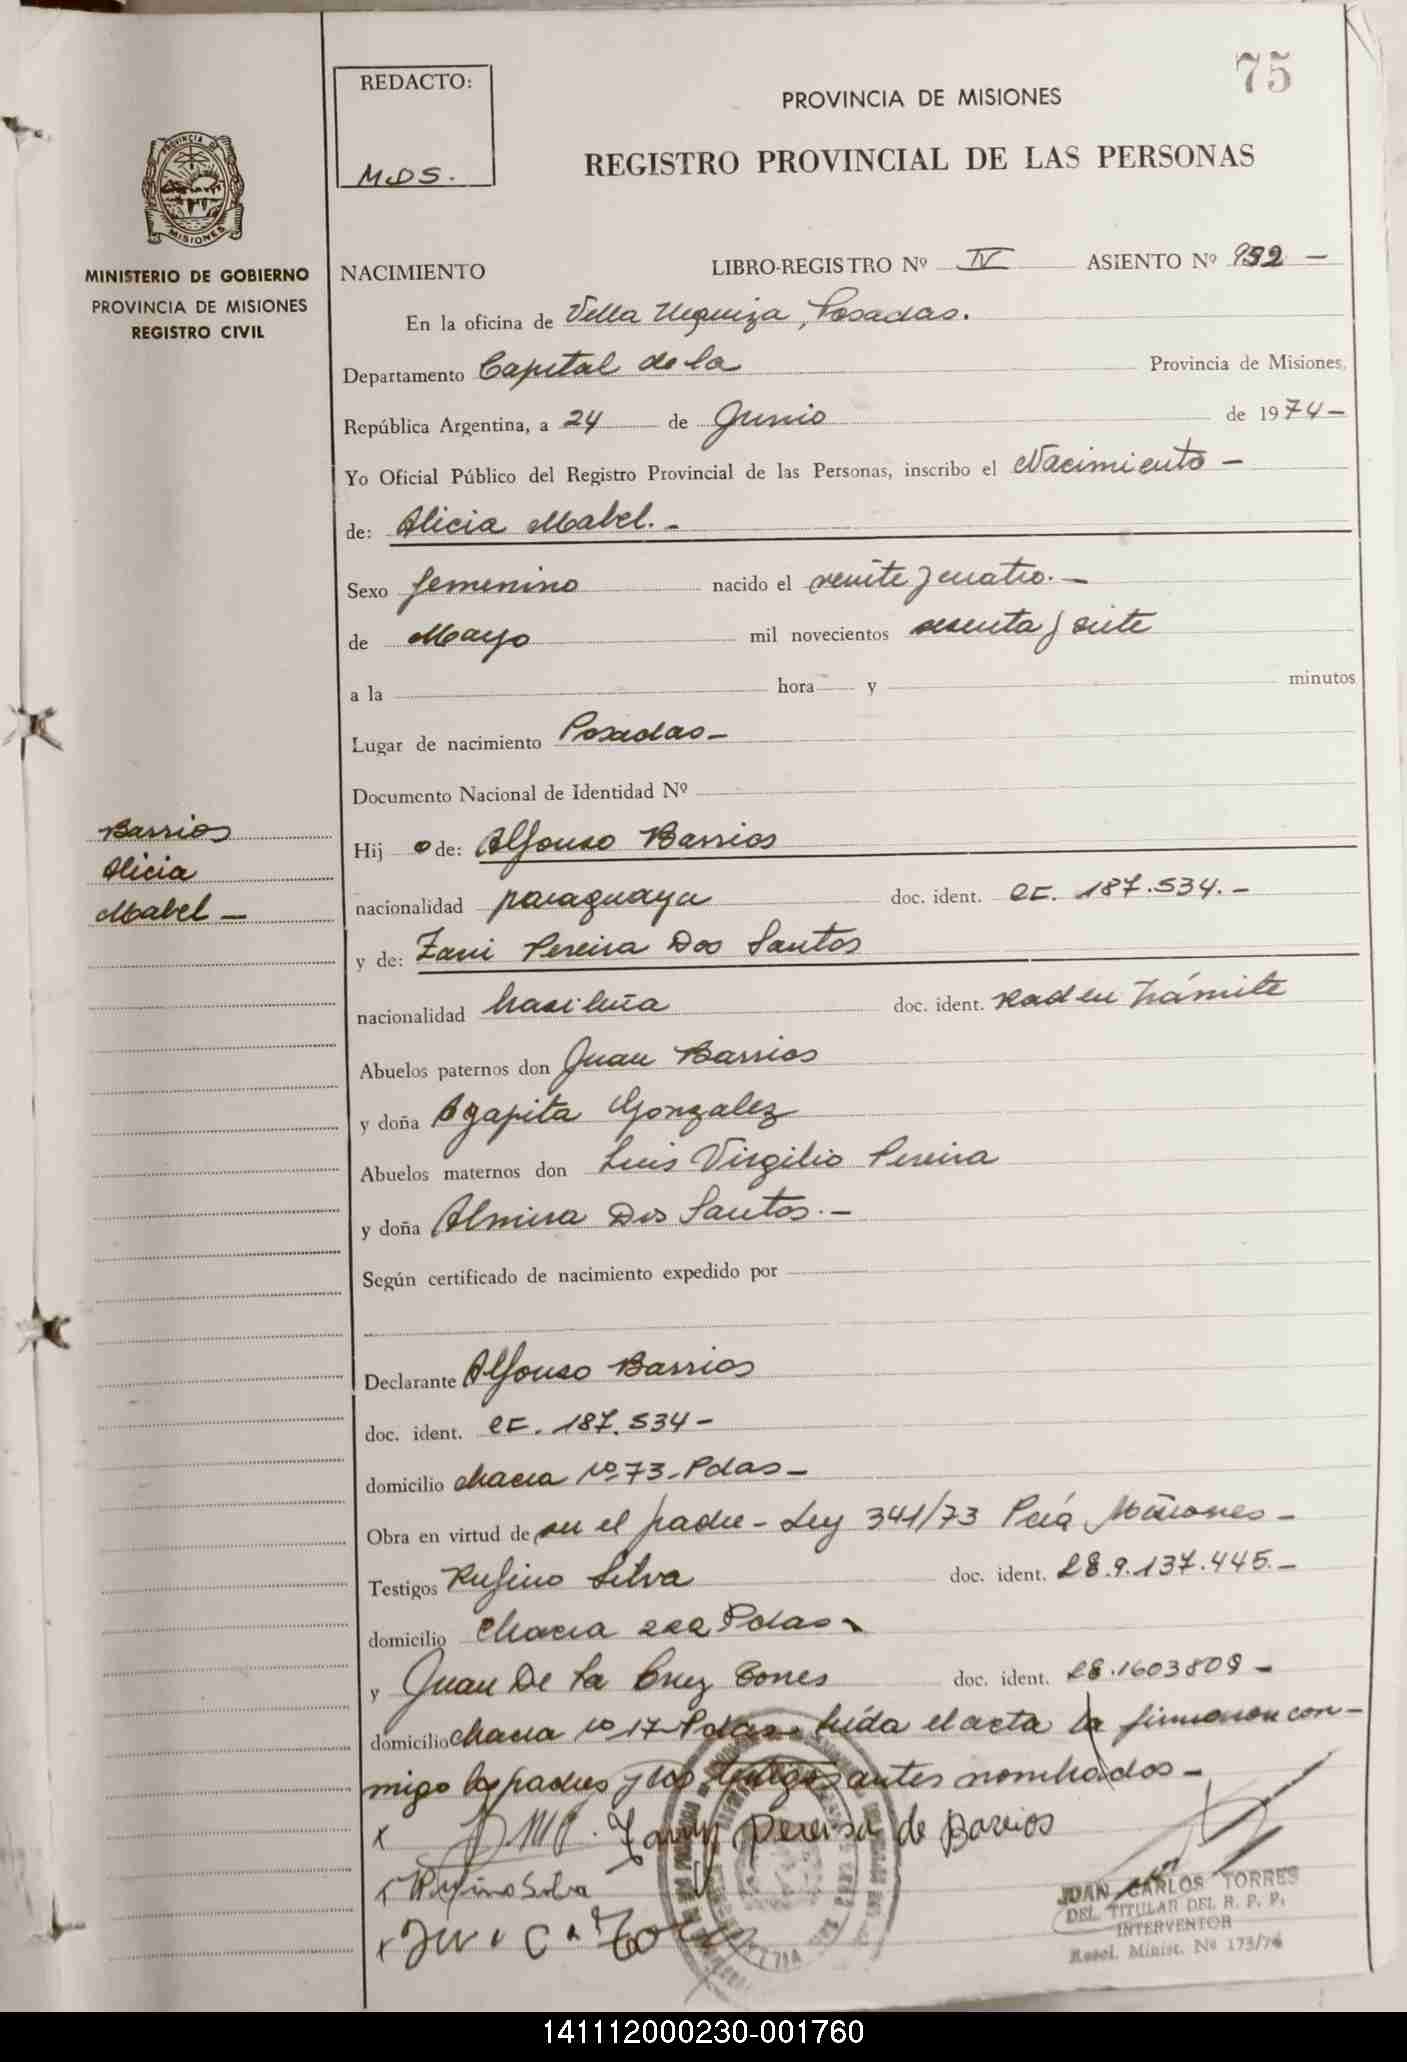 75
REDACTO:
M.D.S.
PROVINCIA DE MISIONES
REGISTRO PROVINCIAL DE LAS PERSONAS
PROVINCIA DE
MISIONES
MINISTERIO DE GOBIERNO
PROVINCIA DE MISIONES
REGISTRO CIVIL
NACIMIENTO LIBRO-REGISTRO Nº IV ASIENTO Nº 992 —
En la oficina de Villa Urquiza, Posadas.
Departamento Capital de la Provincia de Misiones,
República Argentina, a 24 de Junio de 1974 —
Yo Oficial Público del Registro Provincial de las Personas, inscribo el Nacimiento —
de: Alicia Mabel. -
Sexo femenino nacido el veinte y cuatro. —
de Mayo mil novecientos sesenta y siete
a la hora y minutos
Lugar de nacimiento Posadas —
Documento Nacional de Identidad Nº
Barrios
Alicia
Mabel —
Hij o de: Alfonso Barrios
nacionalidad paraguaya doc. ident. CI. 187.534. -
y de: Zani Pereira Dos Santos
nacionalidad brasileña doc. ident. Rad en trámite
Abuelos paternos don Juan Barrios
y doña Agapita Gonzalez
Abuelos maternos don Luis Virgilio Pereira
y doña Almira Dos Santos. —
Según certificado de nacimiento expedido por
Declarante Alfonso Barrios
doc. ident. CI. 187.534 -
domicilio chacra Nº 73 - Pdas —
Obra en virtud de ser el padre - Ley 341/73 Pcia Misiones -
Testigos Rufino Silva doc. ident. LE. 9.137.445. -
domicilio chacra 222 Pdas -
y Juan De La Cruz Torres doc. ident. LE. 1603809 -
domicilio chacra Nº 17 - Pdas - leída el acta la firmaron con-
migo los padres y los testigos antes nombrados -
x Zany Pereira de Barrios
x Rufino Silva
x
JUAN CARLOS TORRES
DEL. TITULAR DEL R. P. P.
INTERVENTOR
Resol. Minist. Nº 173/74
141112000230-001760